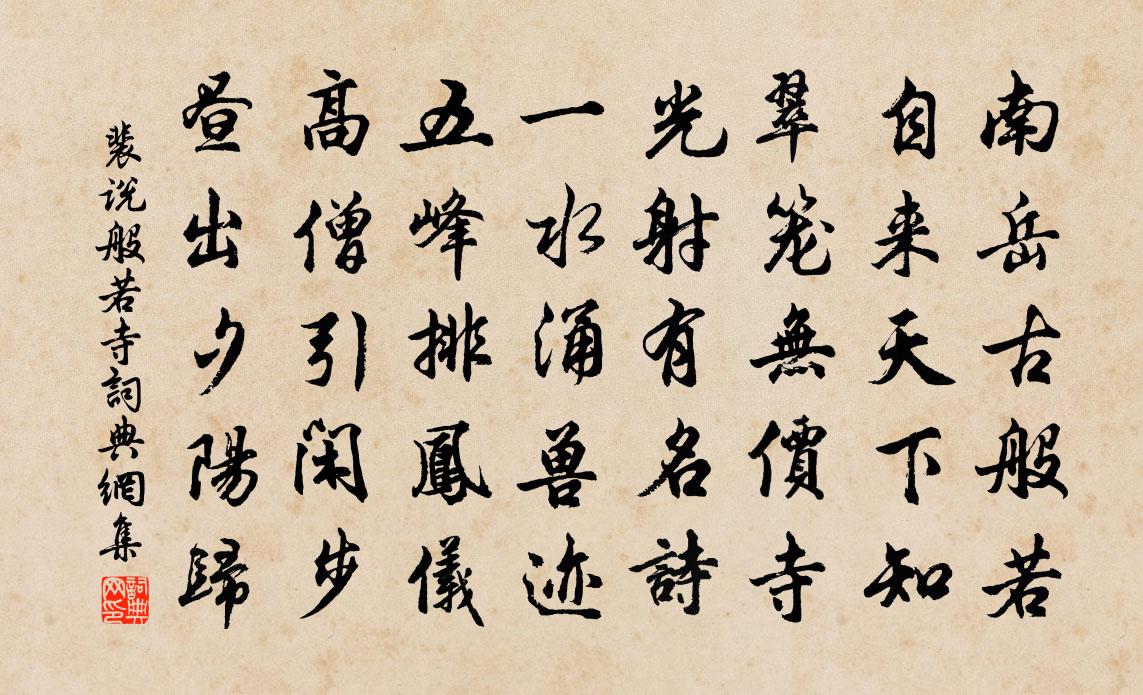 南岳古般若
自来天下知
翠笼無價寺
光射有名詩
一水涌兽迹
五峰排鳳儀
高僧引闲步
昼出夕陽歸
裴说般若寺詞典網集
詞典网印